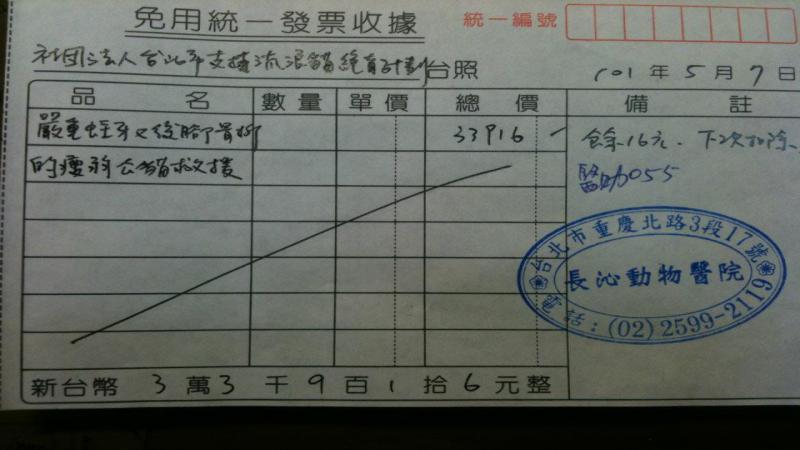 免用統一發票收據
統一編號
社團法人台北市支持流浪貓絕育計劃 台照
101年5月7日
品名 數量 單價 總價 備註
嚴重蛀牙又後腳骨折 33916
的瘦弱公貓救援
餘16元.下次扣除.
醫助055
台北市重慶北路3段17號
長沁動物醫院
電話:(02)2599-2119
新台幣 3萬3千9百1拾6元整